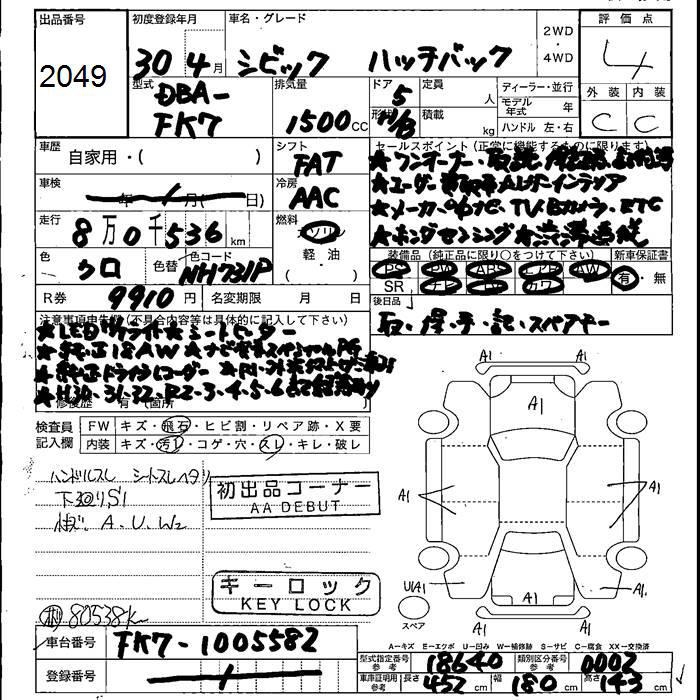 出品番号
2049
初度登録年月
30 4月
車名・グレード
シビック ハッチバック
2WD
・
4WD
評価点
4
外装 内装
C C
型式
DBA-
FK7
排気量
1500 cc
ドア 5
形状
定員 人
積載 kg
ディーラー・並行
モデル年式 年
ハンドル 左・右
車歴
自家用・( )
シフト
FAT
セールスポイント (正常に機能するものに限ります)
★ワンオーナー・取説
★ユーザー
★メーカーナビ、TV、Bカメラ、ETC
★ホンダセンシング
車検
年 月( 日)
冷房
AAC
走行
8万0千536km
燃料
ガソリン
軽・油
( )
色
クロ
色替
色コード
NH731P
装備品 (純正品に限り○をつけて下さい)
PS PW ABS エアB AW
SR ナビ TV カワ
新車保証書
有・無
R券 9910円
名変期限 月 日
後日品
取・保・手・記・スペアキー
注意事項申告欄 (不具合内容等は具体的に記入して下さい)
★LEDヘッドライト★シートヒーター
★純正18AW★ナビ
★純正ドライブレコーダー
★H30・31・32・R2・3・4・5・6
修復歴 有 (箇所
検査員
記入欄
FW キズ・飛石・ヒビ割・リペア跡・X要
内装 キズ・汚レ・コゲ・穴・スレ・キレ・破レ
ハンドルスレ シートスレヘタリ
下廻りS1
A.U.W2
80538k
初出品コーナー
AA DEBUT
キーロック
KEY LOCK
A1
A1
A1
A1
A1
U1A1
A1
A1
スペア
A-キズ E-エクボ U-凹み W-補修跡 S-サビ C-腐食 XX-交換済
車台番号
FK7-1005582
登録番号
型式指定番号
参考
18640
類別区分番号
参考
0002
車庫証明用
参考
長さ 452 cm
幅 180 cm
高さ 143 cm